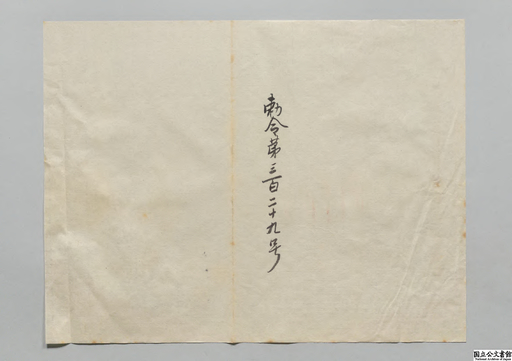 勅令第三百二十九号
国立公文書館
National Archives of Japan